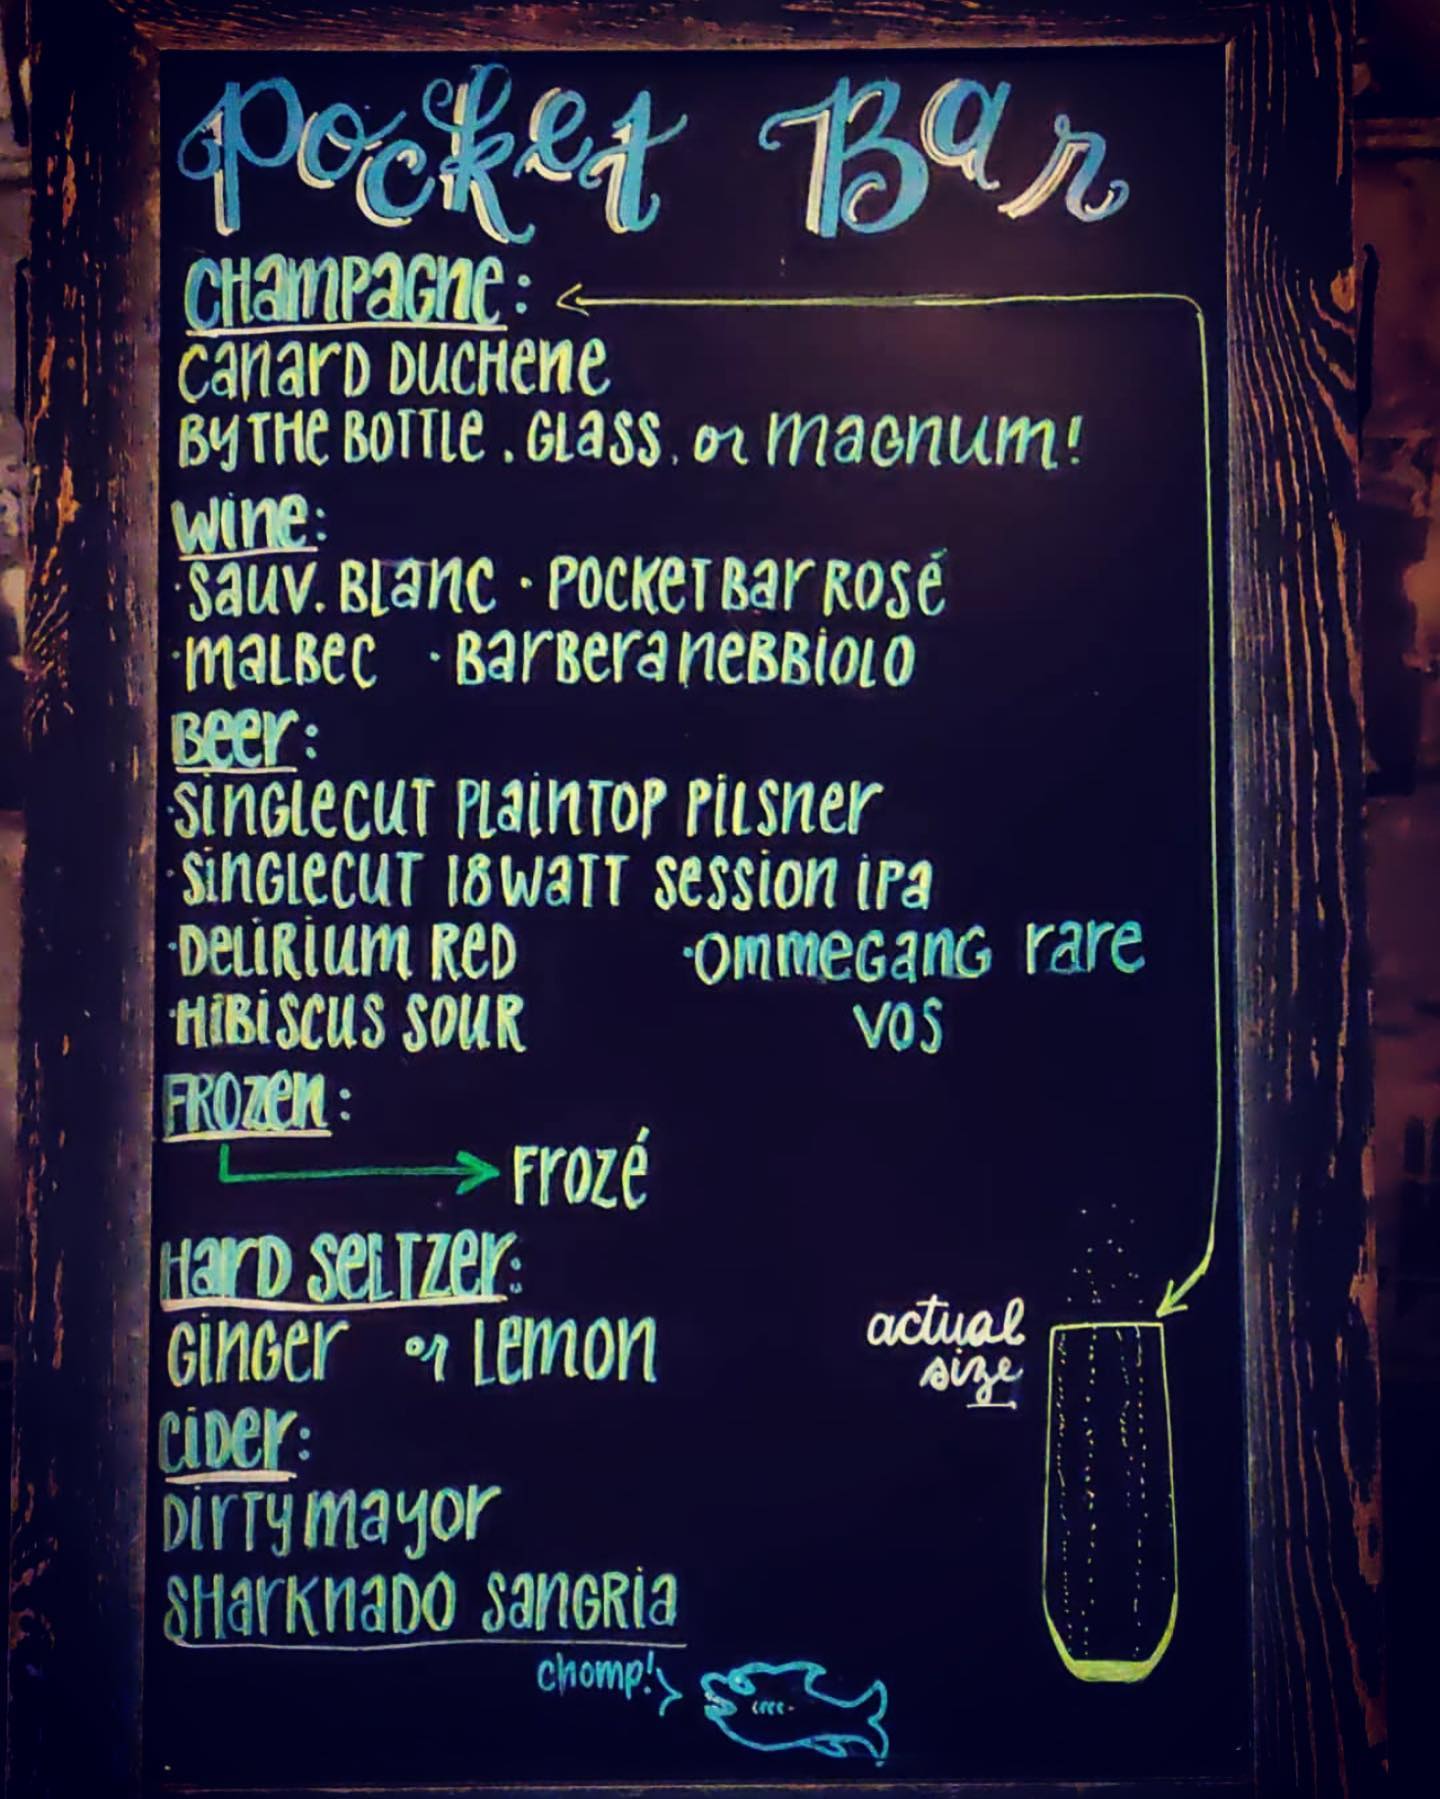 Pocket Bar
CHAMPAGNE:
CANARD DUCHENE
BY THE BOTTLE, GLASS, or MAGNUM!
WINE:
·SAUV. BLANC · POCKET BAR ROSÉ
·MALBEC · BARBERA NEBBIOLO
BEER:
·SINGLECUT PLAINTOP PILSNER
·SINGLECUT 18 WATT SESSION IPA
·DELIRIUM RED ·OMMEGANG RARE
·HIBISCUS SOUR VOS
FROZEN:
FROZÉ
HARD SELTZER:
GINGER or LEMON
actual
size
CIDER:
DIRTY MAYOR
SHARKNADO SANGRIA
chomp!